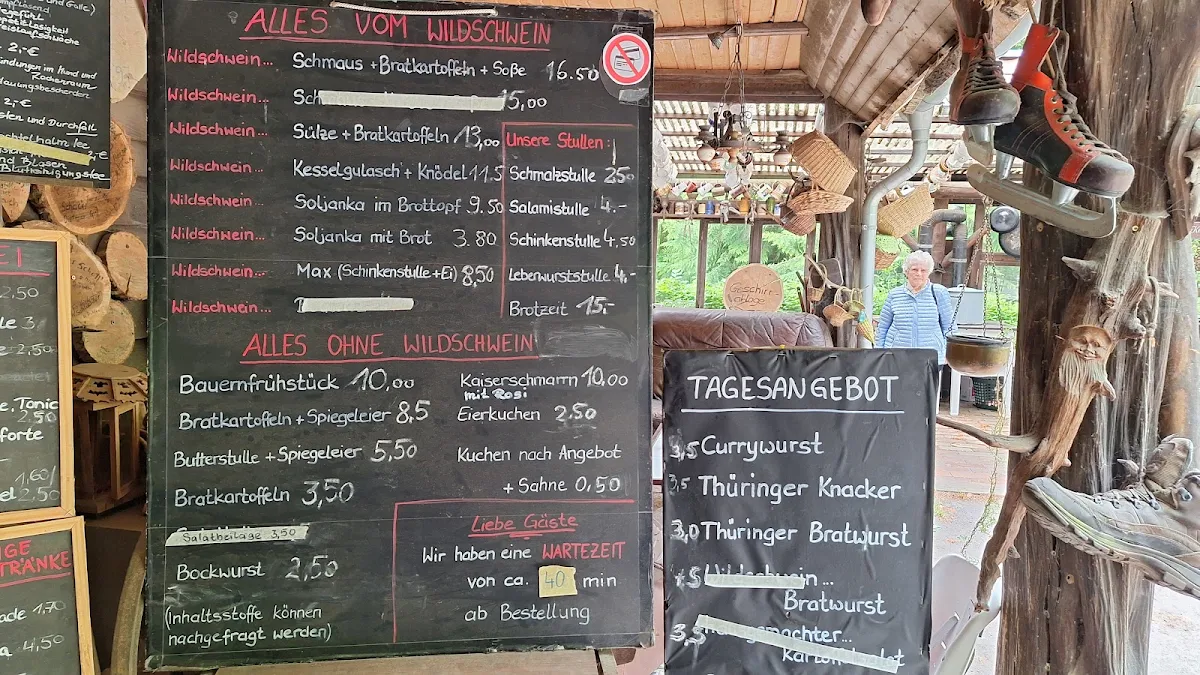 und Galle)
2,-€
ündungen im Mund und
Rachenraum
2,-€
sten und Durchfall
2,-€
nd Blasen
Blutreinigungstee
EI
2.50
2,50
e, Tonic
2.50
forte
1,60/
el 2.50
IGE
TRÄNKE
ade 1,70
a 4,50
ALLES VOM WILDSCHWEIN
Wildschwein... Schmaus + Bratkartoffeln + Soße 16.50
Wildschwein... Sch 15,00
Wildschwein... Sülze + Bratkartoffeln 13,00
Wildschwein... Kesselgulasch + Knödel 11,5
Wildschwein... Soljanka im Brottopf 9.50
Wildschwein... Soljanka mit Brot 3.80
Wildschwein... Max (Schinkenstulle + Ei) 8,50
Wildschwein...
Unsere Stullen:
Schmalzstulle 2,50
Salamistulle 4.-
Schinkenstulle 4,50
Leberwurststulle 4.-
Brotzeit 15,-
ALLES OHNE WILDSCHWEIN
Bauernfrühstück 10,00
Bratkartoffeln + Spiegeleier 8,5
Butterstulle + Spiegeleier 5,50
Bratkartoffeln 3,50
Salatbeilage 3,50
Bockwurst 2,50
(Inhaltsstoffe können
nachgefragt werden)
Kaiserschmarrn 10,00
mit Rosi
Eierkuchen 2.50
Kuchen nach Angebot
+ Sahne 0,50
Liebe Gäste
Wir haben eine WARTEZEIT
von ca. 40 min
ab Bestellung
Geschirr
TAGESANGEBOT
3,5 Currywurst
3,5 Thüringer Knacker
3,0 Thüringer Bratwurst
4,5 Wildschwein...
Bratwurst
3,5